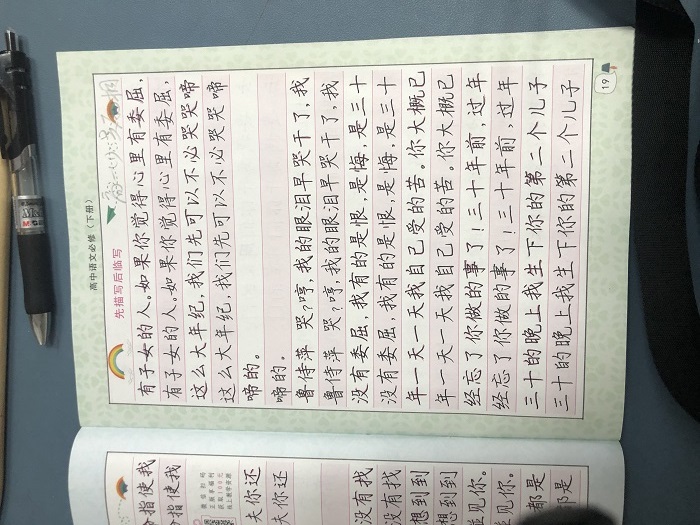 高中语文必修（下册）
先描写后临写
有子女的人。如果你觉得心里有委屈，
有子女的人。如果你觉得心里有委屈，
这么大年纪，我们先可以不必哭哭啼
这么大年纪，我们先可以不必哭哭啼
啼的。
啼的。
鲁侍萍 哭？哼，我的眼泪早哭干了，我
鲁侍萍 哭？哼，我的眼泪早哭干了，我
没有委屈，我有的是恨，是悔，是三十
没有委屈，我有的是恨，是悔，是三十
年一天一天我自己受的苦。你大概已
年一天一天我自己受的苦。你大概已
经忘了你做的事了！三十年前，过年
经忘了你做的事了！三十年前，过年
三十的晚上我生下你的第二个儿子
三十的晚上我生下你的第二个儿子
19
指使我
指使我
夫你还
夫你还
没有找
没有找
想到到
想到到
见你。
见你。
都是
都是